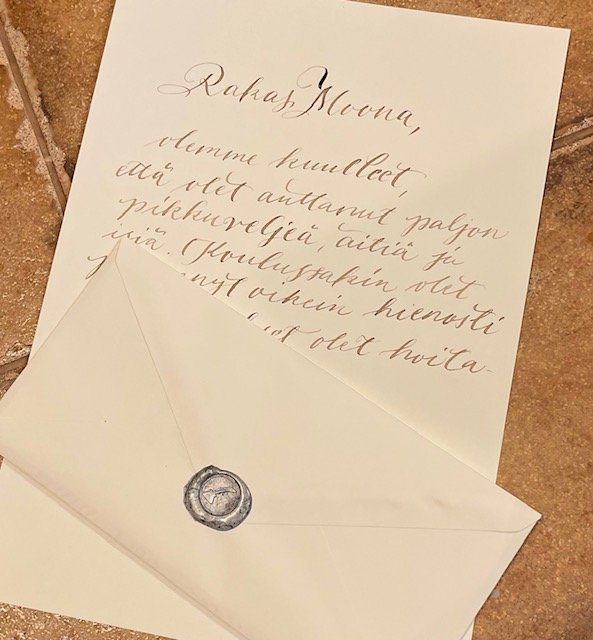 Rakas Moona,
olemme kuulleet,
että olet auttanut paljon
pikkuveljeä, äitiä ja
isiä. Koulussakin olet
oikein hienosti
olet hoita-